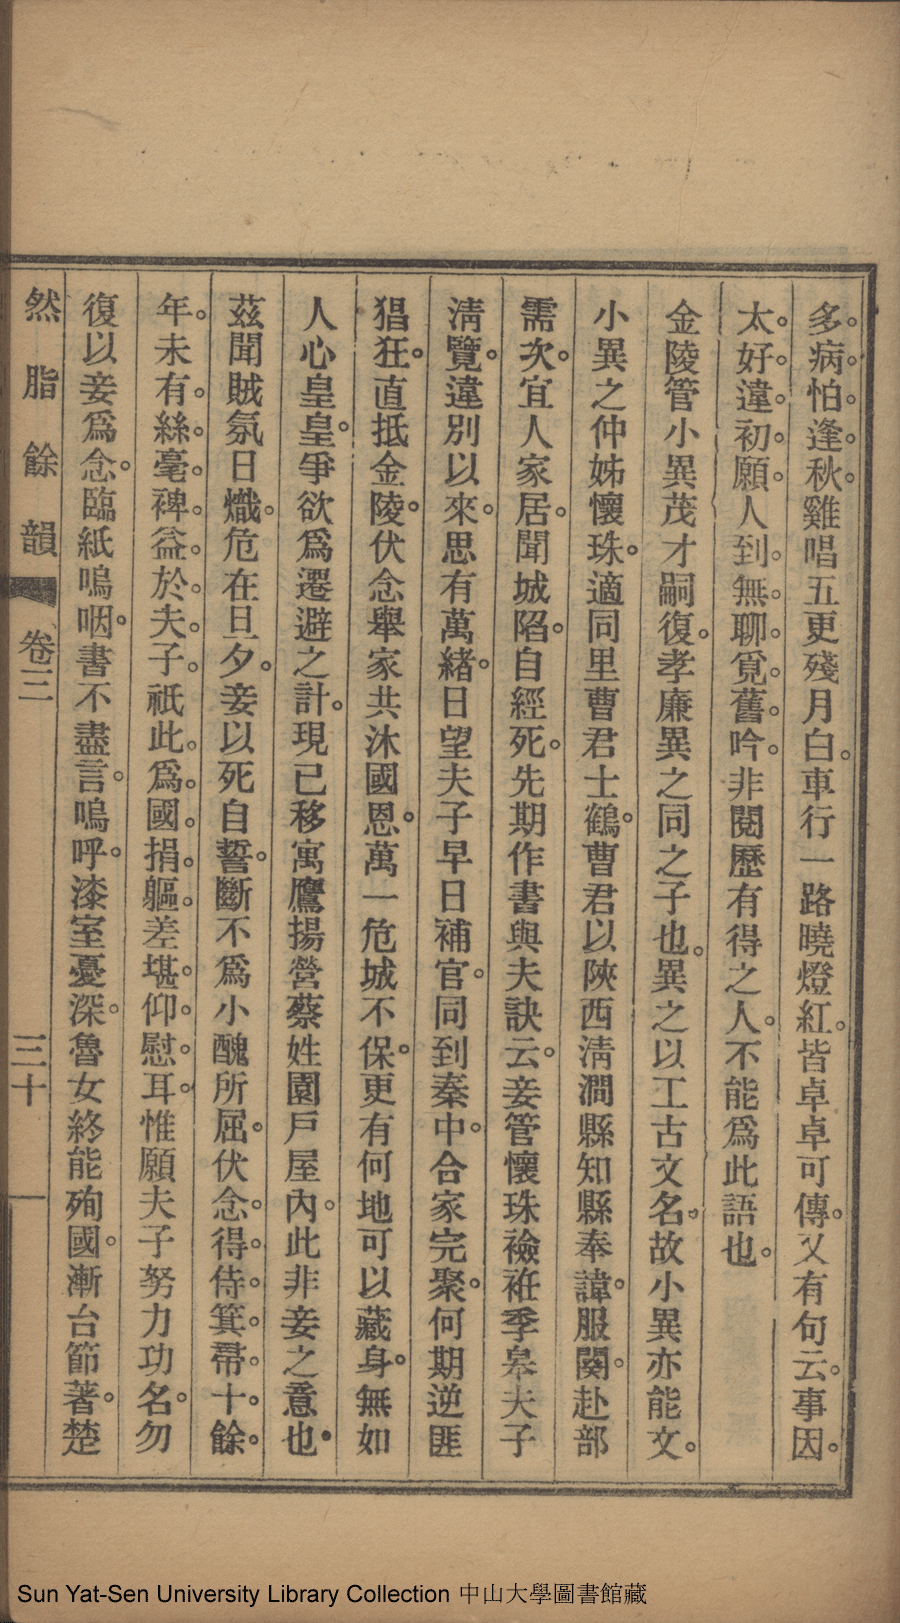 多。病。怕。逢。秋。雞唱五更殘月白。車行一路曉燈紅。皆卓卓可傳。又有句云。事因。
太。好。違。初。願。人到。無。聊。覓。舊。吟。非閱歷有得之人。不能爲此語也。
金陵管小異茂才嗣復。孝廉異之同之子也。異之以工古文名。故小異亦能文。
小異之仲姊懷珠。適同里曹君士鶴。曹君以陝西淸澗縣知縣奉諱。服闋。赴部
需次。宜人家居。聞城陷。自經死。先期作書與夫訣云。妾管懷珠襝袵季皋夫子
淸覽。違別以來。思有萬緖。日望夫子早日補官。同到秦中。合家完聚。何期逆匪
猖狂。直抵金陵。伏念舉家共沐國恩。萬一危城不保。更有何地可以藏身。無如
人心皇皇。爭欲爲遷避之計。現已移寓鷹揚營蔡姓園戶屋內。此非妾之意也。
茲聞賊氛日熾。危在旦夕。妾以死自誓。斷不爲小醜所屈。伏念。得。侍。箕。帚。十。餘。
年。未有。絲。毫。裨。益。於。夫。子。祇此。爲。國。捐。軀。差堪。仰。慰。耳。惟願夫子努力功名。勿
復以妾爲念。臨紙嗚咽。書不盡言。嗚呼。漆室憂深。魯女終能殉國。漸台節著。楚
然脂餘韻 卷三 三十
Sun Yat-Sen University Library Collection 中山大學圖書館藏